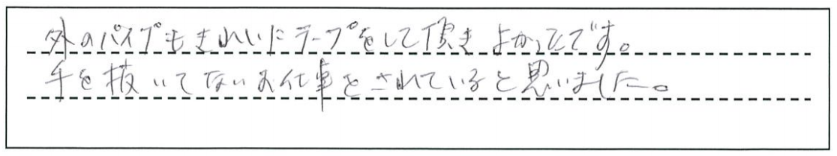 外のパイプもきれいにテープをして頂きよかったです。
手を抜いてないお仕事をされていると思いました。